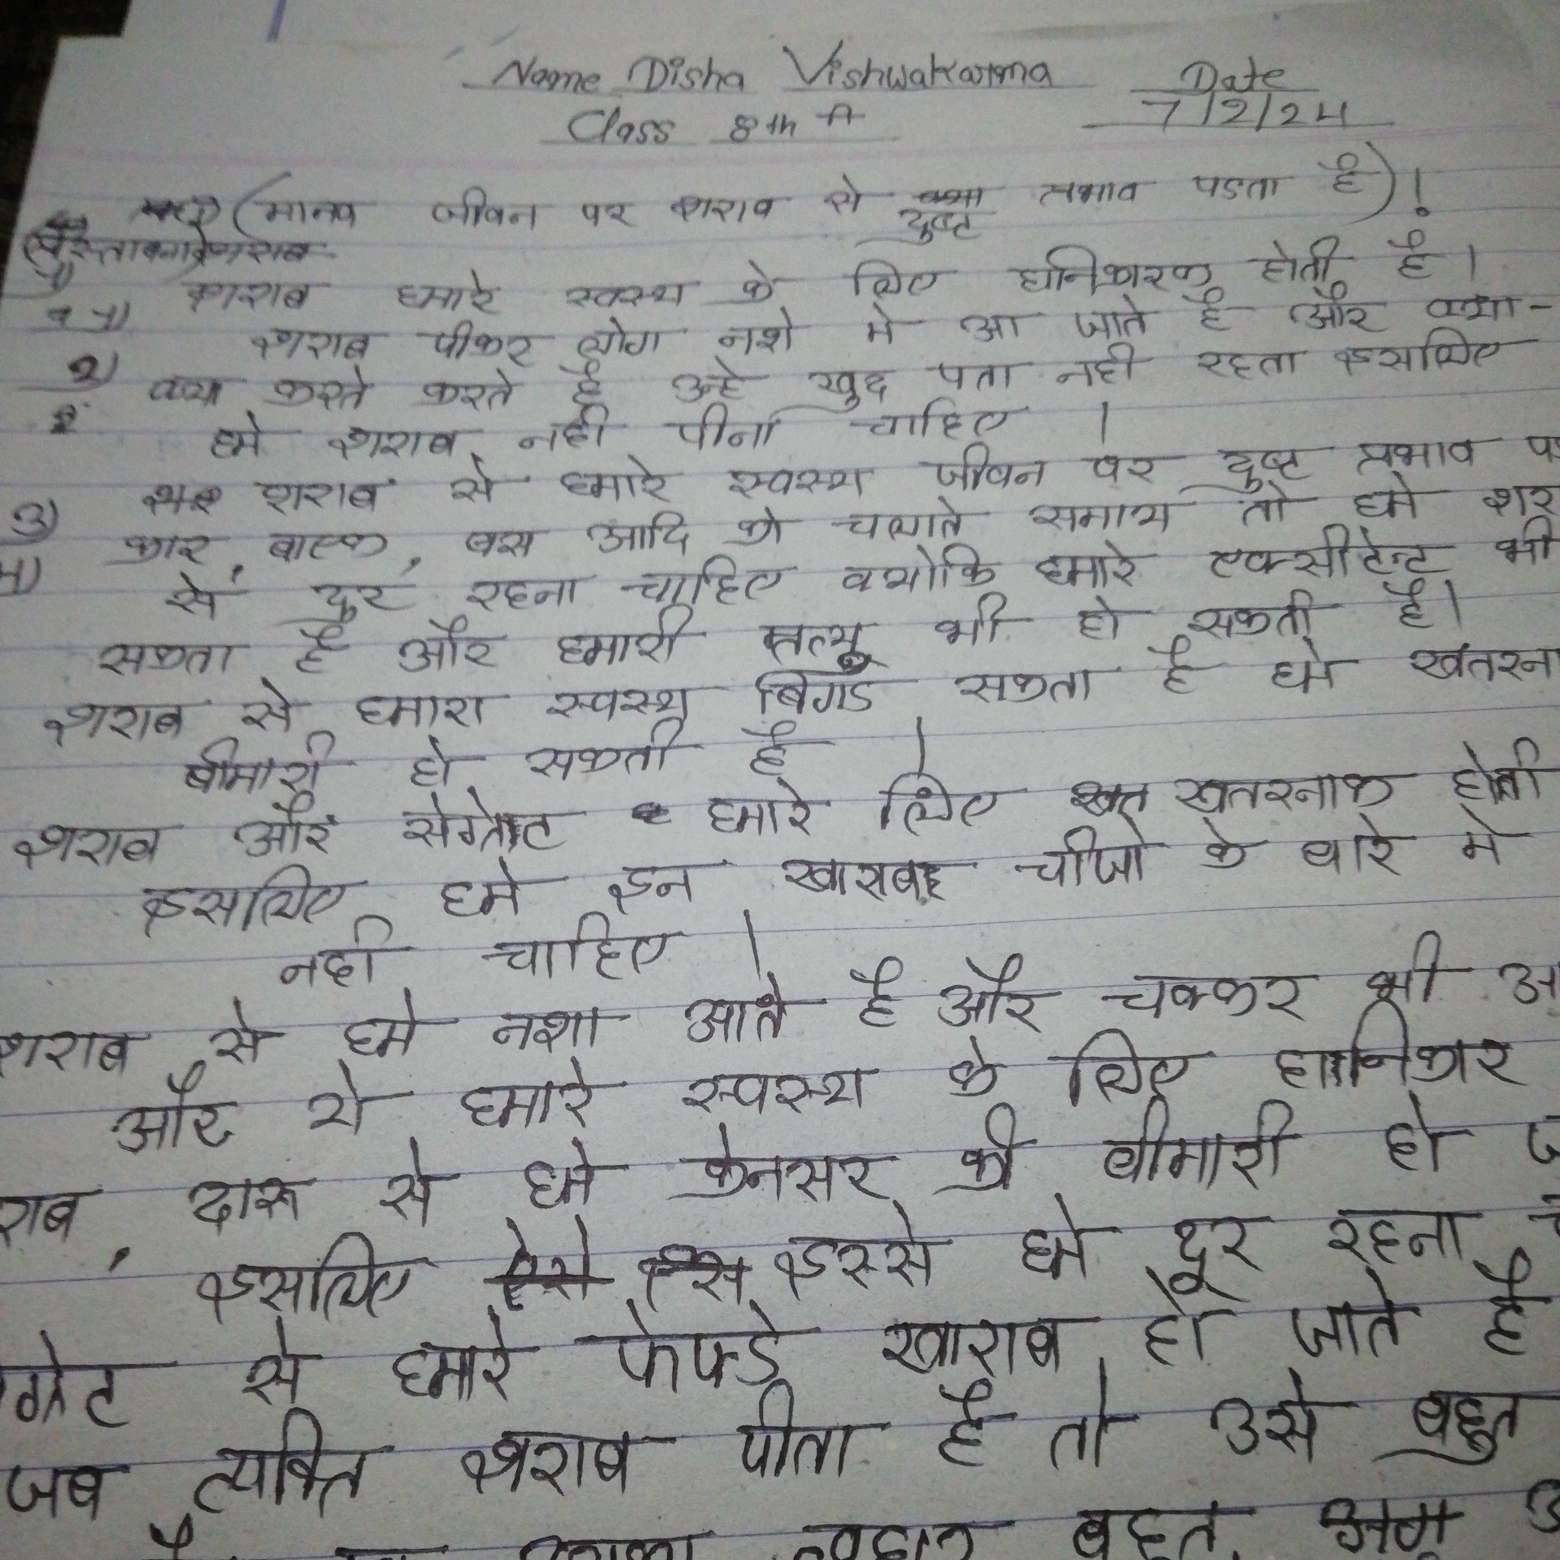 Name Disha Vishwakarma Date
Class 8th A 7/2/24
(मानव जीवन पर शराब से दुष्ट प्रभाव पडता है)!
1) शराब हमारे स्वस्थ के लिए हानिकारक होती है।
शराब पीकर लोग नशे मे आ जाते है और क्या-
2) क्या करते करते है उन्हे खुद पता नही रहता इसालिए
हमे शराब नही पीना चाहिए ।
3) शराब से हमारे स्वस्थ जीवन पर दुष्ट प्रभाव प
4) कार, बाइक, बस आदि को चलाते समाय तो हमे शर
से दुर रहना चाहिए क्योकि हमारे एक्सीटेन्ट भी
सकता है और हमारी मृत्यु भी हो सकती है।
शराब से हमारा स्वस्थ बिगड सकता है हमे खतरना
बीमारी हो सकती है ।
शराब और सेग्रेट हमारे लिए खतरनाक होती
इसालिए हमे इन खाराब चीजो के बारे मे
नही चाहिए ।
शराब से हमे नशा आते है और चक्कर भी आ
और ये हमारे स्वस्थ के लिए हानिकार
राब, दारू से हमे केनसर की बीमारी हो ज
इसालिए इससे हमे दूर रहना च
ग्रेट से हमारे फेफडे खाराब हो जाते है
जब व्यक्ति शराब पीता है तो उसे बहुत
बहुत